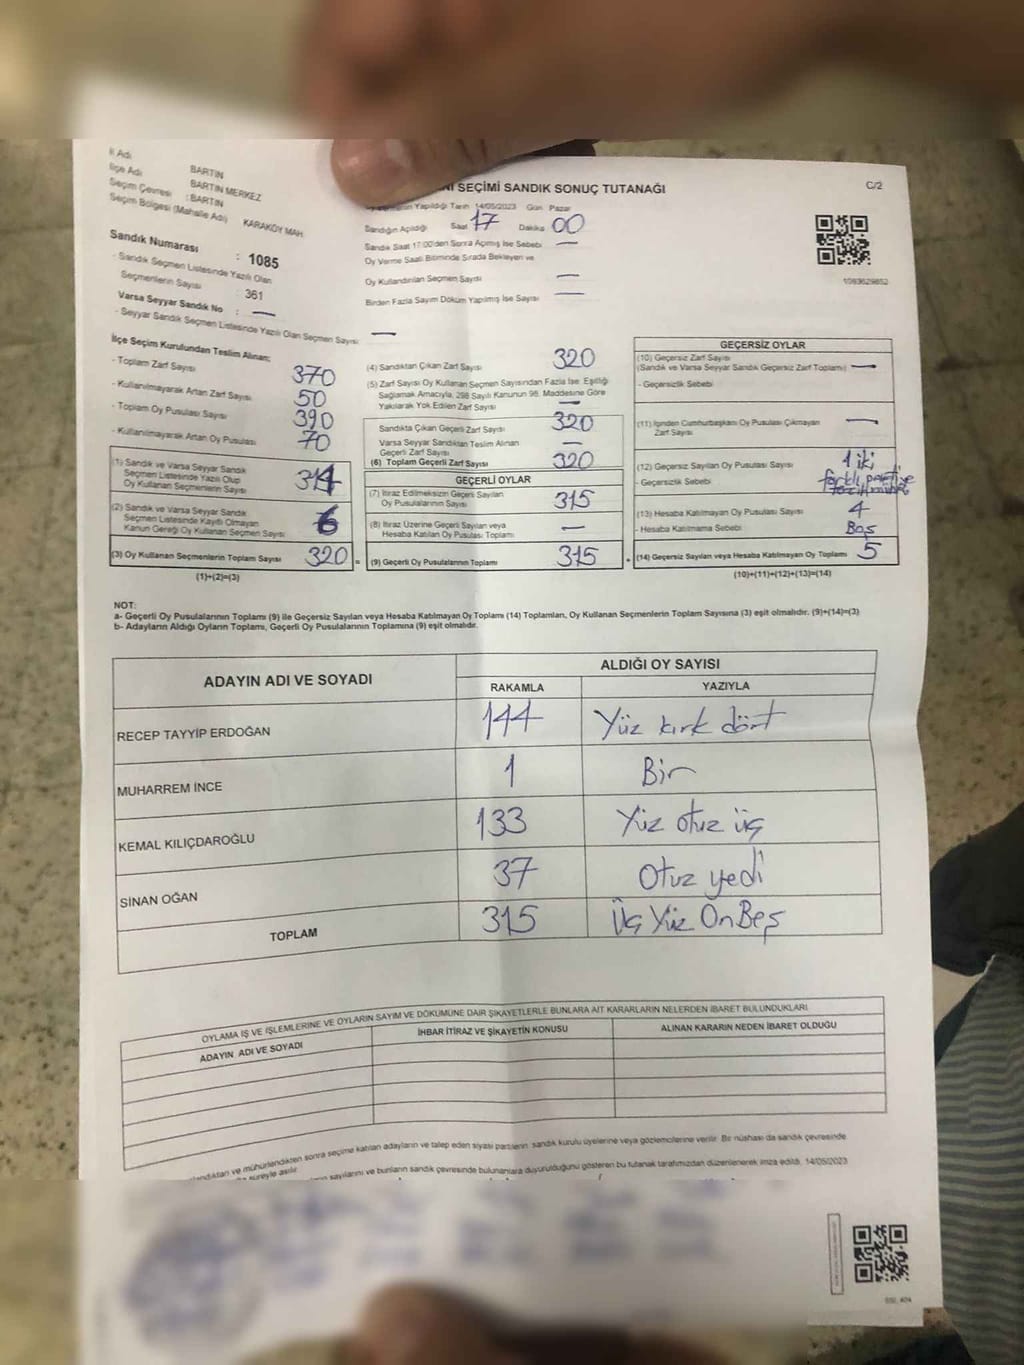 İl Adı
BARTIN
İlçe Adı
BARTIN MERKEZ
Seçim Çevresi : BARTIN
Seçim Bölgesi (Mahalle Adı) KARAKÖY MAH.
Sandık Numarası : 1085
- Sandık Seçmen Listesinde Yazılı Olan
Seçmenlerin Sayısı : 361
Varsa Seyyar Sandık No : —
- Seyyar Sandık Seçmen Listesinde Yazılı Olan Seçmen Sayısı: —
SEÇİMİ SANDIK SONUÇ TUTANAĞI
C/2
Yapıldığı Tarih 14/05/2023 Gün Pazar
Sandığın Açıldığı Saat 17 Dakika 00
Sandık Saat 17:00'den Sonra Açılmış İse Sebebi —
Oy Verme Saati Bitiminde Sırada Bekleyen ve
Oy Kullandırılan Seçmen Sayısı —
Birden Fazla Sayım Döküm Yapılmış İse Sayısı —
1093629852
İlçe Seçim Kurulundan Teslim Alınan;
- Toplam Zarf Sayısı 370
- Kullanılmayarak Artan Zarf Sayısı 50
- Toplam Oy Pusulası Sayısı 390
- Kullanılmayarak Artan Oy Pusulası 70
(1) Sandık ve Varsa Seyyar Sandık
Seçmen Listesinde Yazılı Olup
Oy Kullanan Seçmenlerin Sayısı 314
(2) Sandık ve Varsa Seyyar Sandık
Seçmen Listesinde Kayıtlı Olmayan
Kanun Gereği Oy Kullanan Seçmen Sayısı 6
(3) Oy Kullanan Seçmenlerin Toplam Sayısı 320 =
(1)+(2)=(3)
(4) Sandıktan Çıkan Zarf Sayısı 320
(5) Zarf Sayısı Oy Kullanan Seçmen Sayısından Fazla İse; Eşitliği
Sağlamak Amacıyla, 298 Sayılı Kanunun 98. Maddesine Göre
Yakılarak Yok Edilen Zarf Sayısı —
Sandıkta Çıkan Geçerli Zarf Sayısı 320
Varsa Seyyar Sandıktan Teslim Alınan
Geçerli Zarf Sayısı —
(6) Toplam Geçerli Zarf Sayısı 320
GEÇERLİ OYLAR
(7) İtiraz Edilmeksizin Geçerli Sayılan
Oy Pusulasının Sayısı 315
(8) İtiraz Üzerine Geçerli Sayılan veya
Hesaba Katılan Oy Pusulası Toplamı —
(9) Geçerli Oy Pusulalarının Toplamı 315 +
GEÇERSİZ OYLAR
(10) Geçersiz Zarf Sayısı
(Sandık ve Varsa Seyyar Sandık Geçersiz Zarf Toplamı) —
- Geçersizlik Sebebi
(11) İçinden Cumhurbaşkanı Oy Pusulası Çıkmayan
Zarf Sayısı —
(12) Geçersiz Sayılan Oy Pusulası Sayısı 1 iki
- Geçersizlik Sebebi farklı partiye
(13) Hesaba Katılmayan Oy Pusulası Sayısı 4
- Hesaba Katılmama Sebebi Boş
(14) Geçersiz Sayılan veya Hesaba Katılmayan Oy Toplamı 5
(10)+(11)+(12)+(13)=(14)
NOT:
a- Geçerli Oy Pusulalarının Toplamı (9) ile Geçersiz Sayılan veya Hesaba Katılmayan Oy Toplamı (14) Toplamları, Oy Kullanan Seçmenlerin Toplam Sayısına (3) eşit olmalıdır. (9)+(14)=(3)
b- Adayların Aldığı Oyların Toplamı, Geçerli Oy Pusulalarının Toplamına (9) eşit olmalıdır.
ADAYIN ADI VE SOYADI
ALDIĞI OY SAYISI
RAKAMLA YAZIYLA
RECEP TAYYİP ERDOĞAN 144 Yüz kırk dört
MUHARREM İNCE 1 Bir
KEMAL KILIÇDAROĞLU 133 Yüz otuz üç
SİNAN OĞAN 37 Otuz yedi
TOPLAM 315 Üç Yüz On Beş
OYLAMA İŞ VE İŞLEMLERİNE VE OYLARIN SAYIM VE DÖKÜMÜNE DAİR ŞİKAYETLERLE BUNLARA AİT KARARLARIN NELERDEN İBARET BULUNDUKLARI
ADAYIN ADI VE SOYADI
İHBAR İTİRAZ VE ŞİKAYETİN KONUSU
ALINAN KARARIN NEDEN İBARET OLDUĞU
ve mühürlendikten sonra seçime katılan adayların ve talep eden siyasi partilerin sandık kurulu üyelerine veya gözlemcilerine verilir. Bir nüshası da sandık çevresinde
süreyle asılır.
sayılarını ve bunların sandık çevresinde bulunanlara duyurulduğunu gösteren bu tutanak tarafımızdan düzenlenerek imza edildi. 14/05/2023